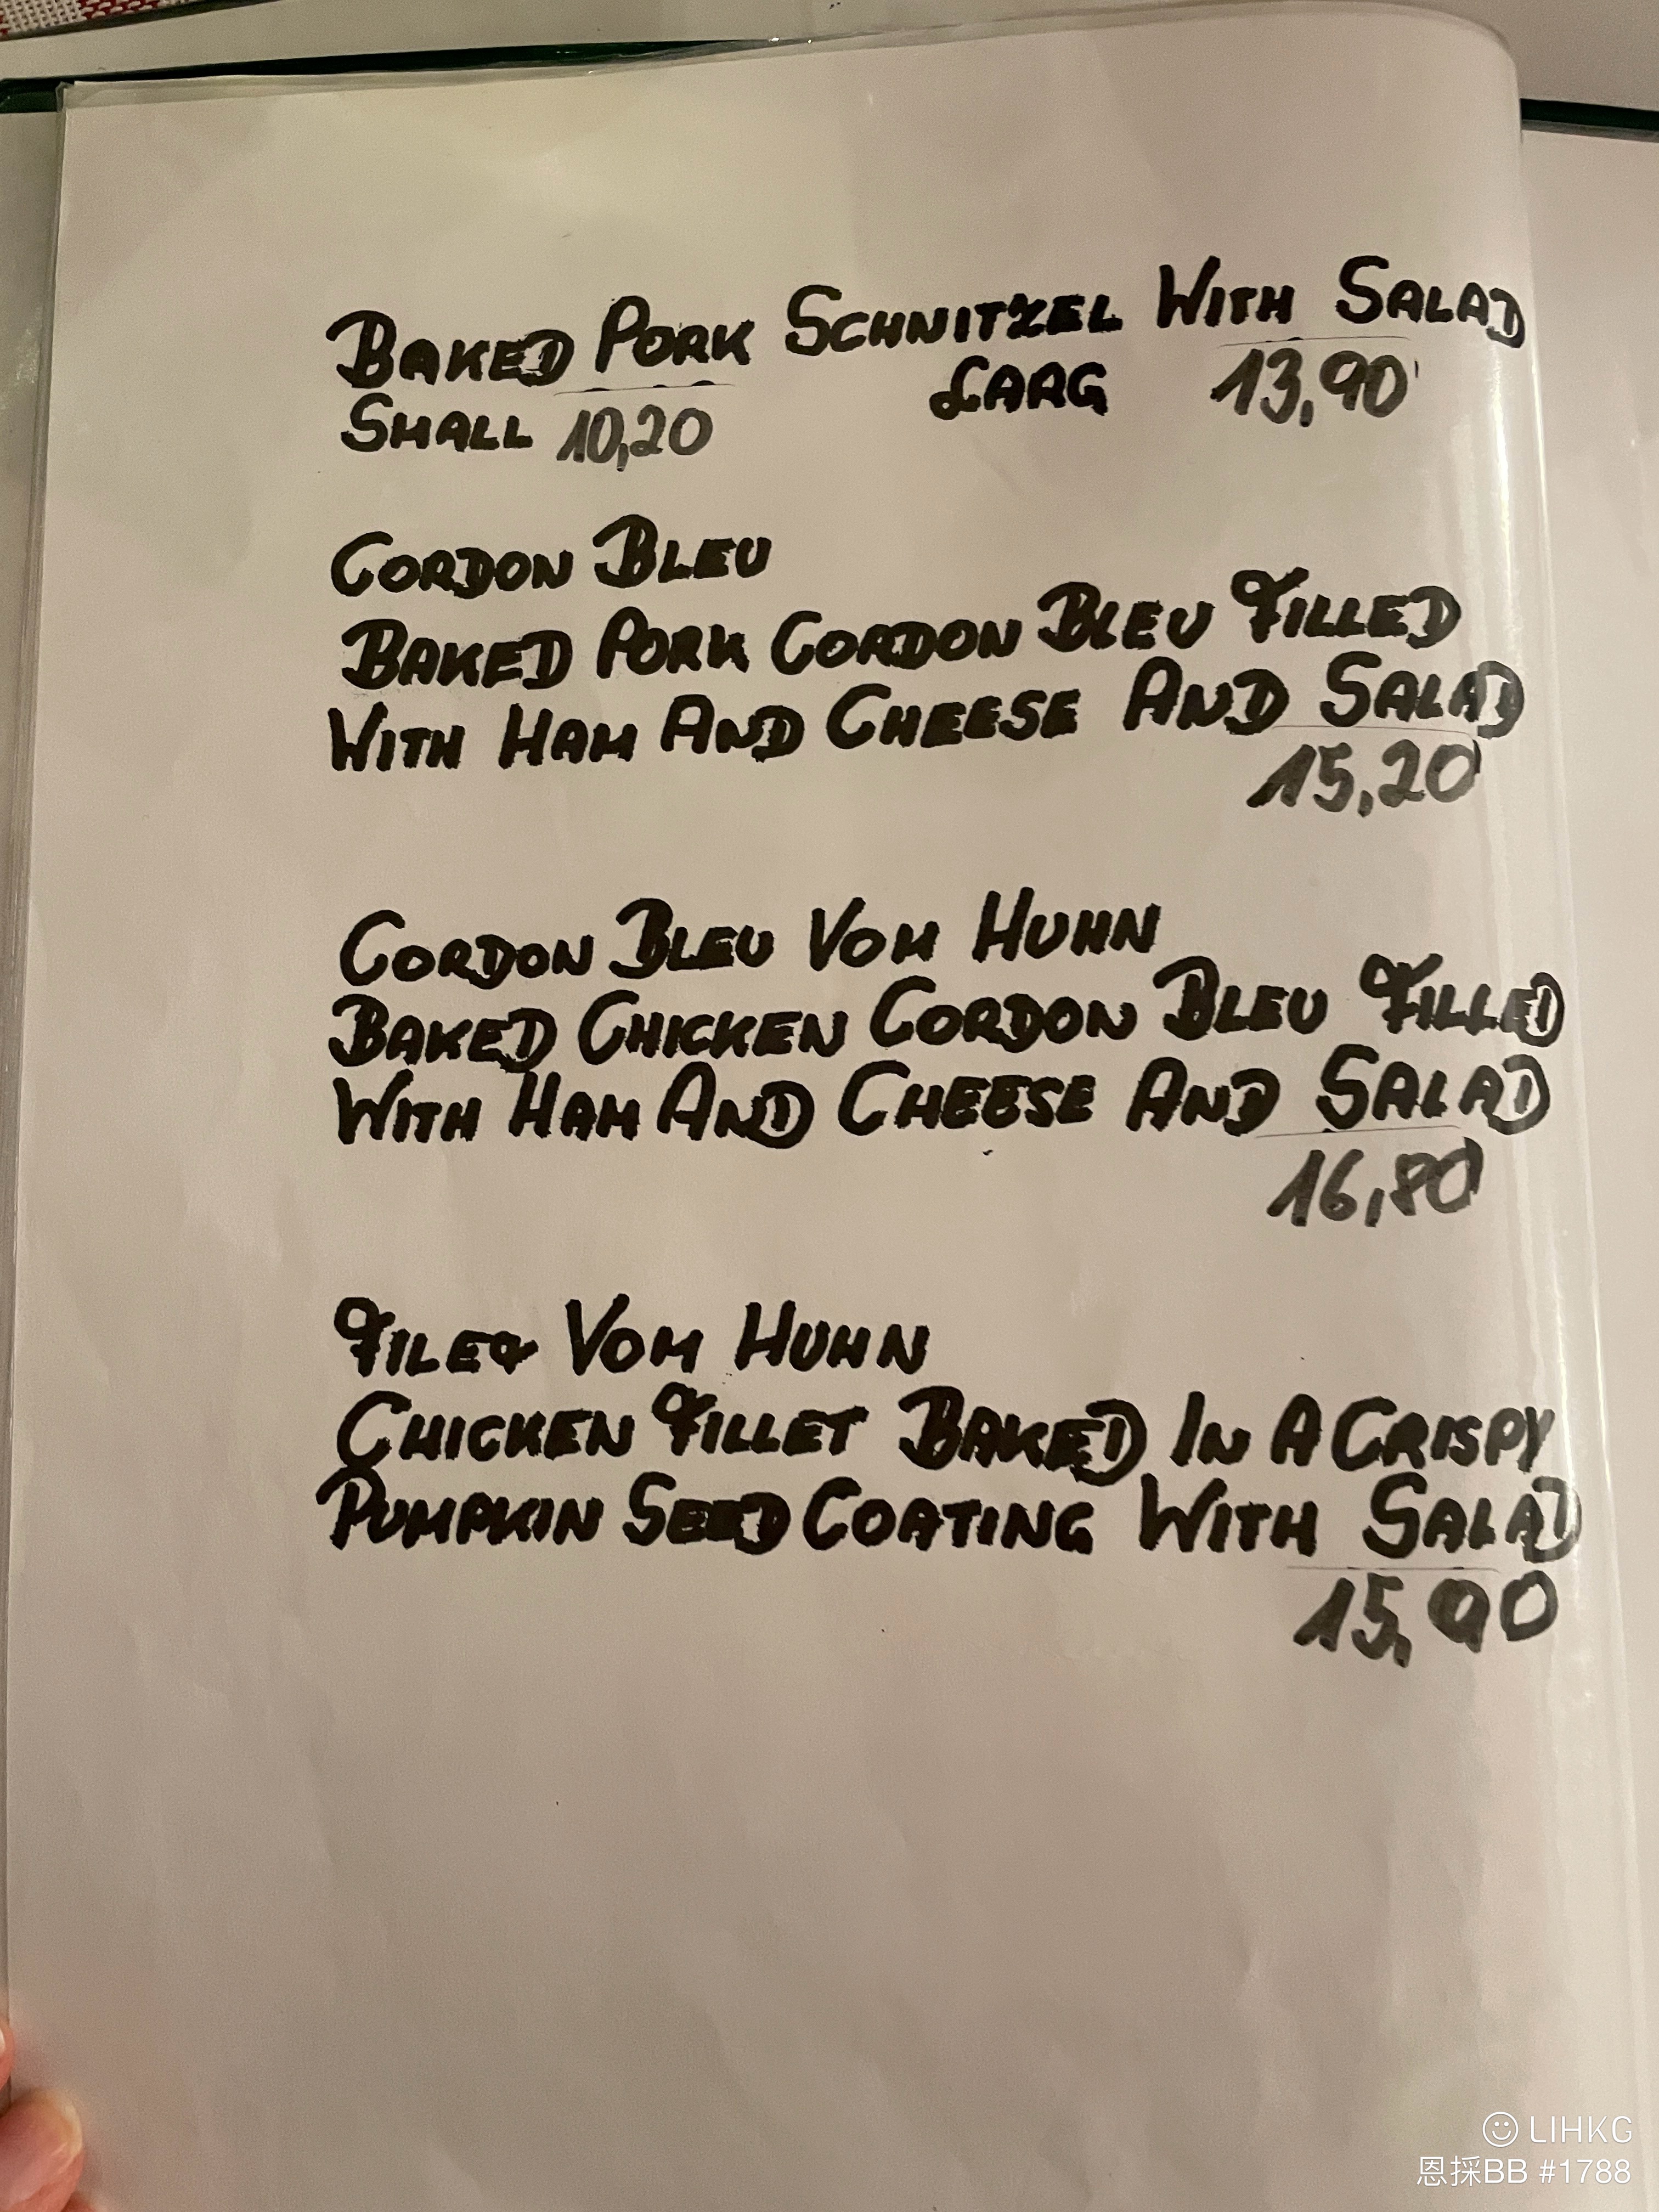 BAKED PORK SCHNITZEL WITH SALAD
SMALL 10,20 LARG 13,90
CORDON BLEU
BAKED PORK CORDON BLEU FILLED
WITH HAM AND CHEESE AND SALAD
15,20
CORDON BLEU VOM HUHN
BAKED CHICKEN CORDON BLEU FILLED
WITH HAM AND CHEESE AND SALAD
16,80
FILET VOM HUHN
CHICKEN FILLET BAKED IN A CRISPY
PUMPKIN SEED COATING WITH SALAD
15,90
LIHKG
恩採BB #1788